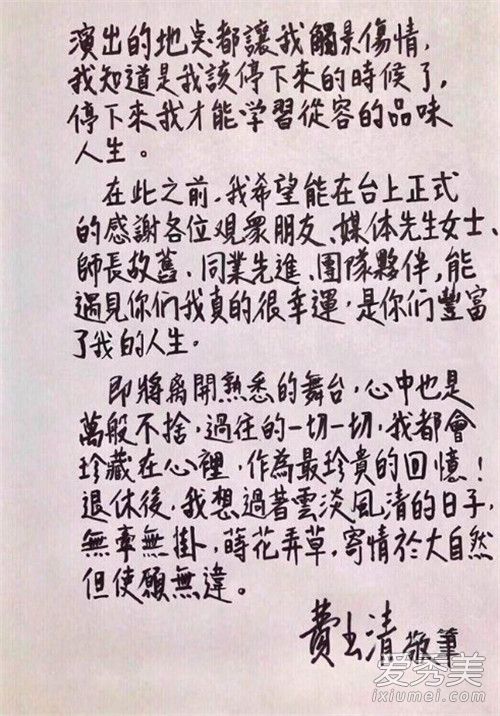 演出的地点都讓我觸景傷情，
我知道是我該停下來的時候了，
停下來我才能学習從容的品味
人生。
在此之前，我希望能在台上正式
的感謝各位观眾朋友、媒体先生女士、
師長故舊、同業先進、團隊夥伴，能
遇見你们我真的很幸運，是你们豐富
了我的人生。
即將离開熟悉的舞台，心中也是
萬般不捨，過往的一切一切，我都會
珍藏在心裡，作為最珍貴的回憶！
退休後，我想過著雲淡風清的日子，
無牽無掛，蒔花弄草，寄情於大自然
但使願無違。
費玉清 敬筆
爱秀美
ixiumei.com